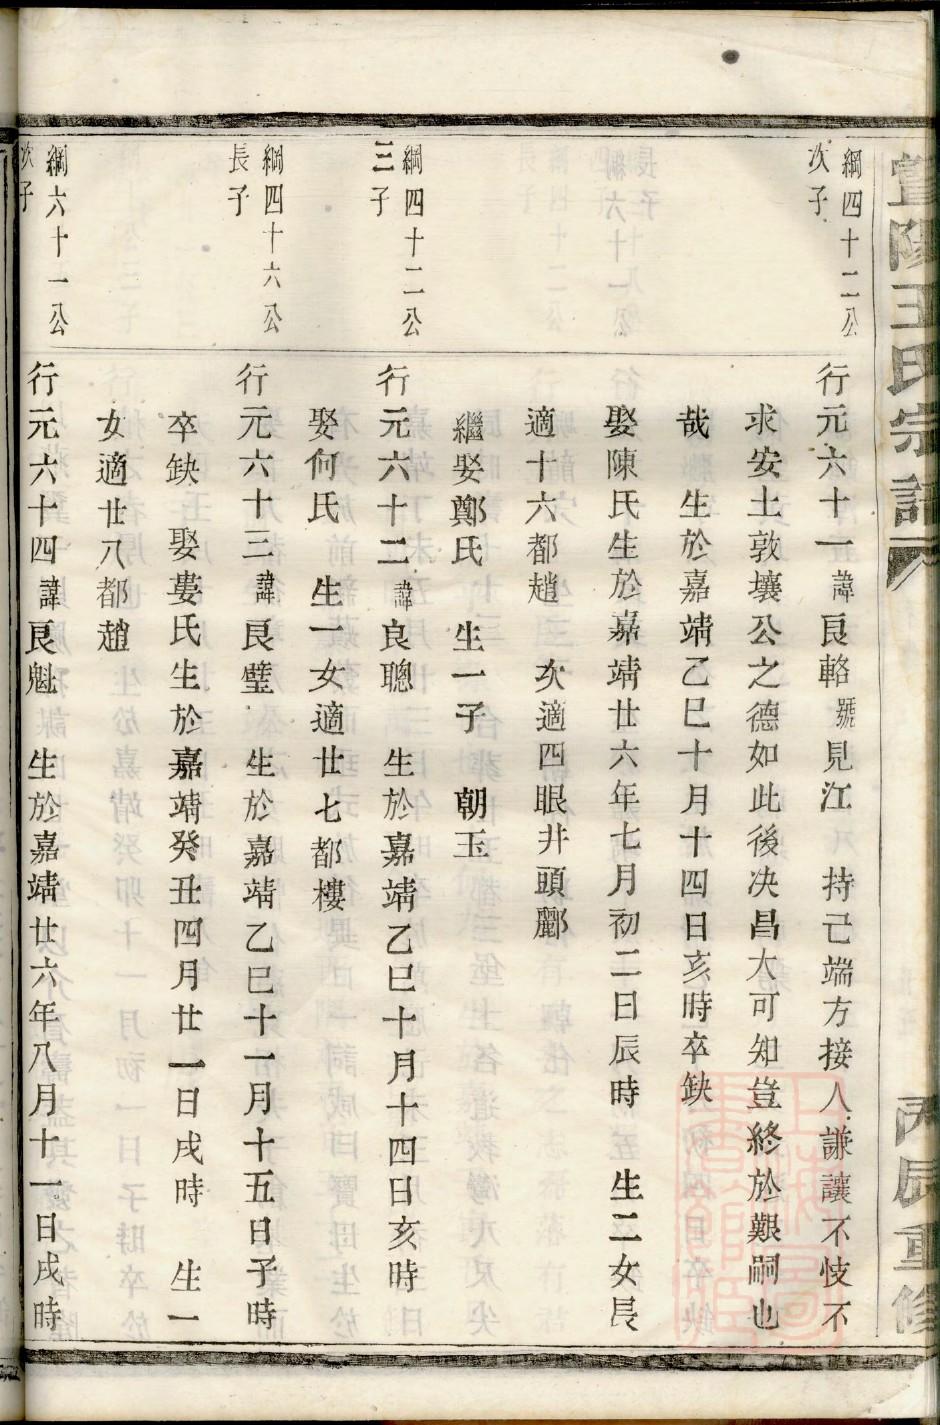 暨陽王氏宗譜
丙辰重修
綱四十二公
次子
行元六十一諱良輅號見江 持己端方接人謙讓不忮不
求安土敦壤公之德如此後決昌大可知豈終於艱嗣也
哉 生於嘉靖乙巳十月十四日亥時卒缺
娶陳氏生於嘉靖廿六年七月初二日辰時 生二女長
適十六都趙 次適四眼井頭酈
繼娶鄭氏 生一子 朝玉
綱四十二公
三子
行元六十二諱良聰 生於嘉靖乙巳十月十四日亥時
娶何氏 生一女適廿七都樓
綱四十六公
長子
行元六十三諱良璧 生於嘉靖乙巳十一月十五日子時
卒缺 娶婁氏生於嘉靖癸丑四月廿一日戌時 生一
女適廿八都趙
綱六十一公
次子
行元六十四諱良魁 生於嘉靖廿六年八月十一日戌時